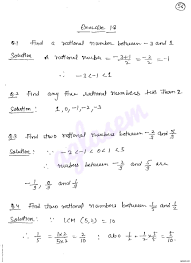 Exercise 1.3
Q.1 Find a rational number between -3 and 1
Solution A rational number = -3+1/2 = -2/2 = -1
∴ -3 < -1 < 1
Q.2 Find any five rational numbers less than 2
Solution 1, 0, -1, -2, -3
Q.3 Find two rational numbers between -2/3 and 5/3
Solution ∵ -2 < -1 < 0 < 1 < 5
∴ numbers between -2/3 and 5/3 are
-1/3, 0 and 1/3
Q.4 Find two rational numbers between 1/5 and 1/2
Solution ∵ LCM (5,2) = 10
∴ 1/5 = 1×2/5×2 = 2/10 ; also 1/2 × 5/5 = 5/10